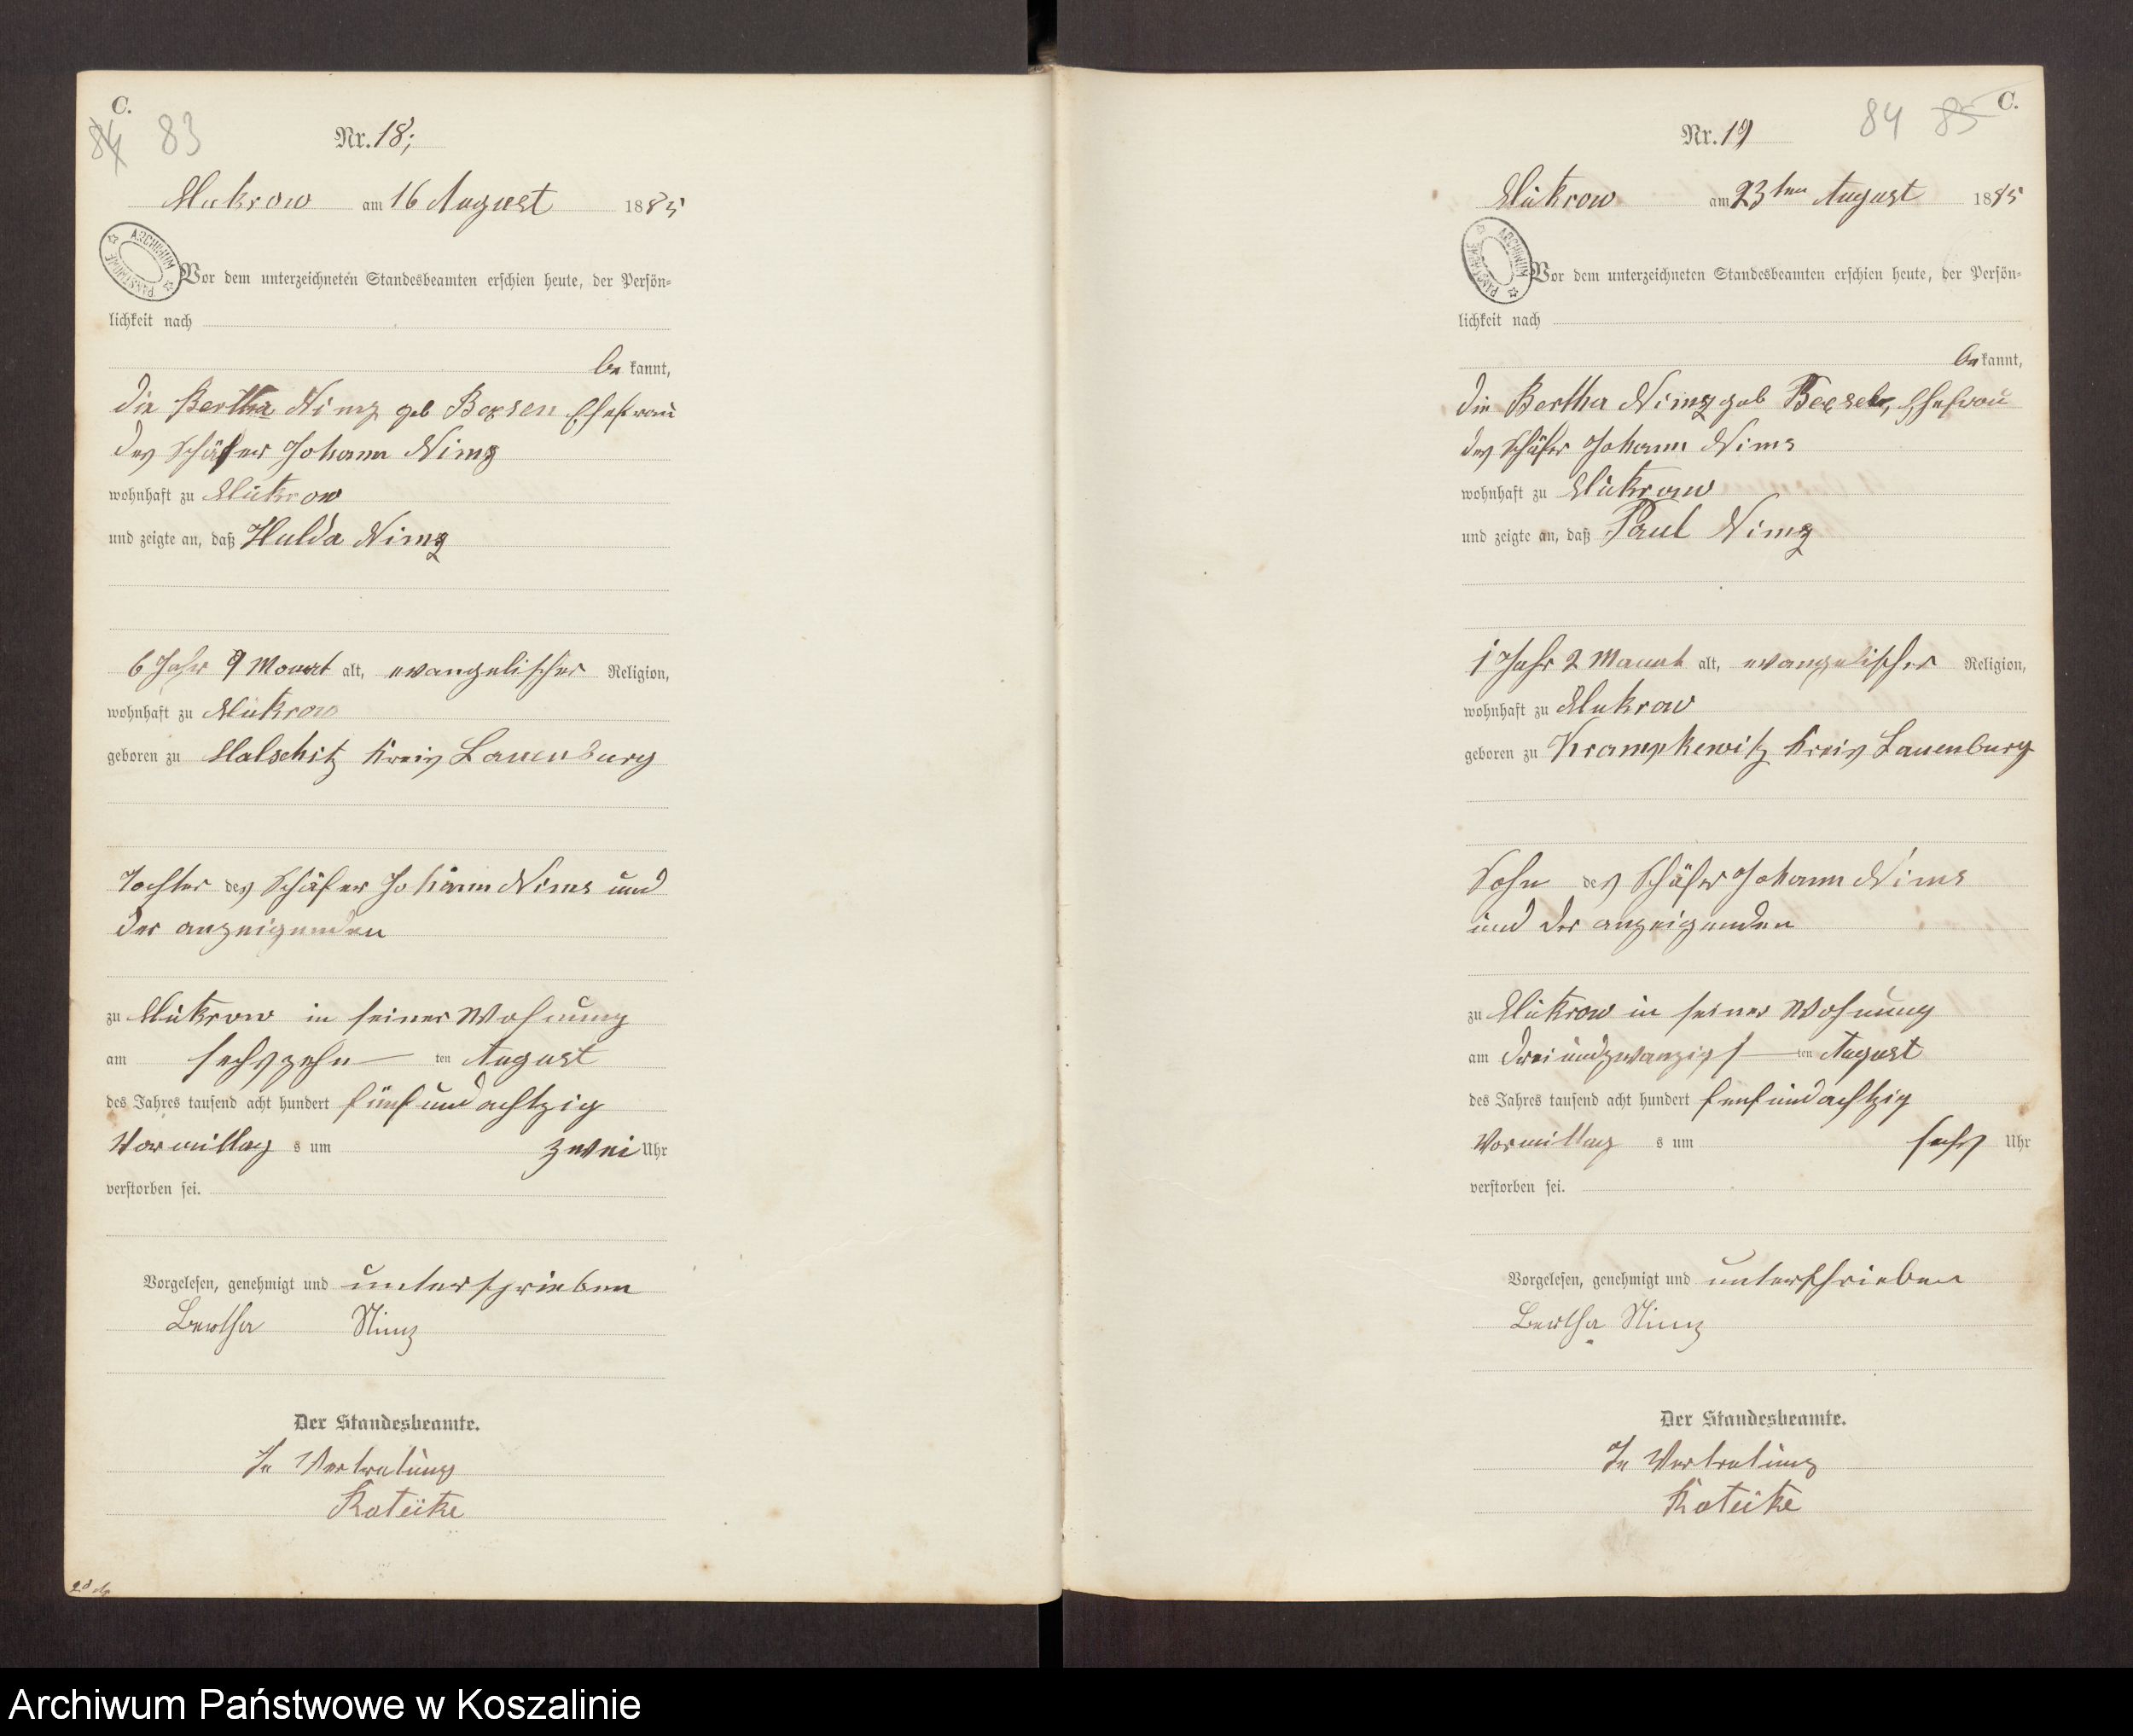 C.
84 83
Nr. 18;
Mukrow am 16 August 1885
ARCHIWUM PAŃSTWOWE
Vor dem unterzeichneten Standesbeamten erschien heute, der Persön-
lichkeit nach
be kannt,
die Bertha Nimz geb Ehefrau
des Schäfer Johann Nimz
wohnhaft zu Mukrow
und zeigte an, daß Hulda Nimz
6 Jahr 9 Monat alt, evangelischer Religion,
wohnhaft zu Mukrow
geboren zu Malschitz Kreis Lauenburg
Tochter des Schäfer Johann Nims und
der anzeigenden
zu Mukrow in seiner Wohnung
am sechszehn ten August
des Jahres tausend acht hundert fünf und achtzig
Vormittag s um zwei Uhr
verstorben sei.
Vorgelesen, genehmigt und unterschrieben
Bertha Nimz
Der Standesbeamte.
In Vertretung
C.
84 85
Nr. 19
Mukrow am 23ten August 1885
ARCHIWUM PAŃSTWOWE
Vor dem unterzeichneten Standesbeamten erschien heute, der Persön-
lichkeit nach
be kannt,
die Bertha Nimz geb Ehefrau
des Schäfer Johann Nims
wohnhaft zu Mukrow
und zeigte an, daß Paul Nimz
1 Jahr 2 Monat alt, evangelischer Religion,
wohnhaft zu Mukrow
geboren zu Krampkewitz Kreis Lauenburg
Sohn des Schäfer Johann Nims
und der anzeigenden
zu Mukrow in seiner Wohnung
am dreiundzwanzigs ten August
des Jahres tausend acht hundert funf und achtzig
Vormittag s um sechs Uhr
verstorben sei.
Vorgelesen, genehmigt und unterschrieben
Bertha Nimz
Der Standesbeamte.
In Vertretung
Archiwum Państwowe w Koszalinie